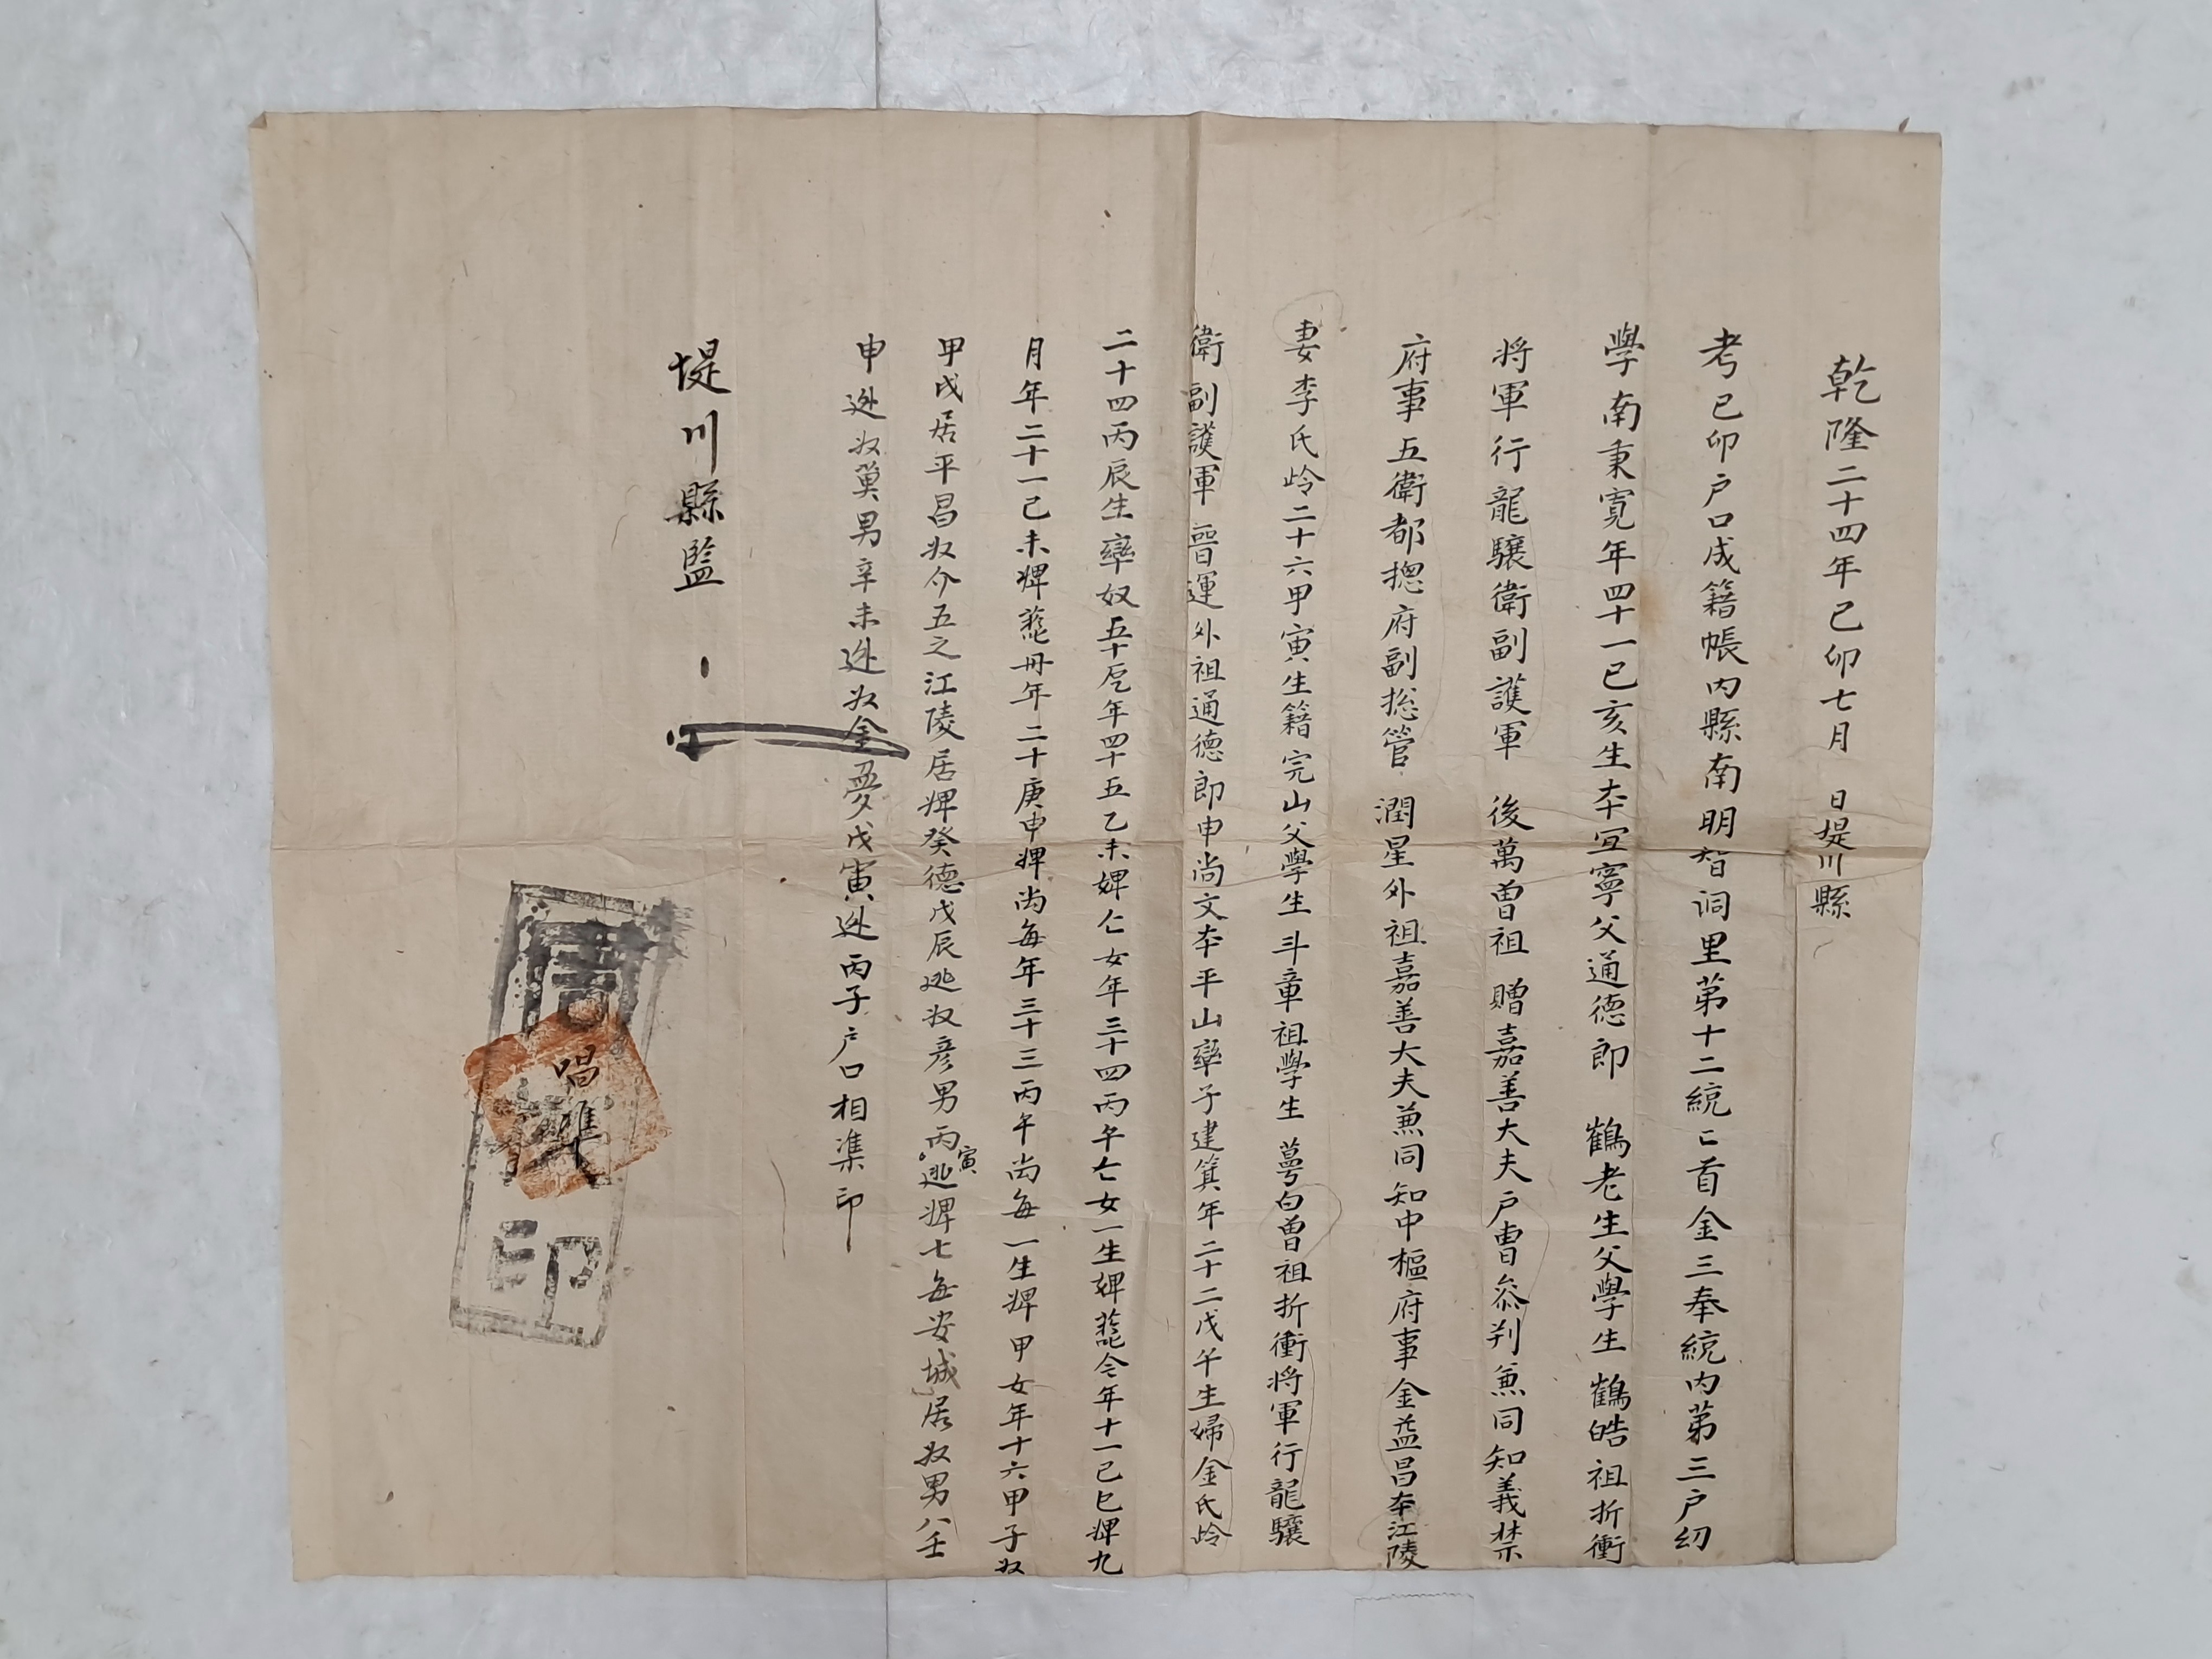 乾隆二十四年己卯七月 日堤川縣
考己卯户口成籍帳内縣南明智洞里第十二統统首金三奉統内第三户幼
學南秉寬年四十一己亥生本宜寧父通德郎 鶴老生父學生 鶴皓祖折衝
將軍行龍驤衛副護軍 後萬曾祖 贈嘉善大夫户曹叅判兼同知義禁
府事五衛都摠府副摠管 潤星外祖嘉善大夫兼同知中樞府事金益昌本江陵
妻李氏岭二十六甲寅生籍完山父學生斗章祖學生 萼白曾祖折衝將軍行龍驤
衛副護軍 晉運外祖通德郎申尚文本平山率子建箕年二十二戊午生婦金氏岭
二十四丙辰生率奴 年四十五乙未婢 女年三十四丙午亡女一生婢 今年十一己巳婢九
月年二十一己未婢 丹年二十庚申婢尚每年三十三丙午尚每一生婢甲女年十六甲子奴
甲戌居平昌奴今五之江陵居婢癸德戊辰逃奴彦男丙寅逃婢七每安城居奴男八壬
申迯奴莫男辛未迯奴金夢戊寅迯丙子户口相准印
堤川縣監
周 唱準
印